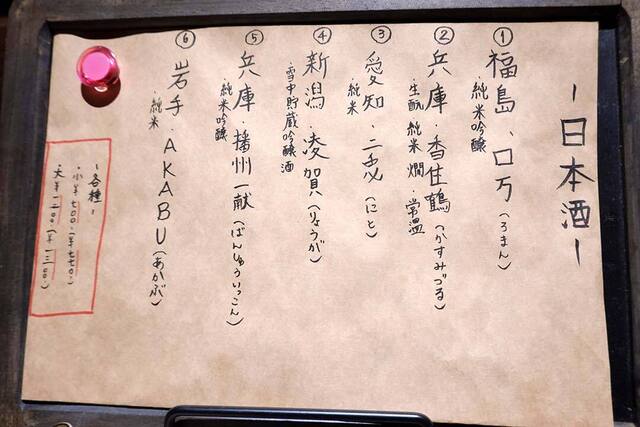 ー日本酒ー
① 福島、ロ万(ろまん)
・純米吟醸
② 兵庫・香住鶴(かすみづる)
・生酛 純米 燗・常温
③ 愛知・二兎(にと)
・純米
④ 新潟・凌賀(りょうが)
・雪中貯蔵吟醸酒
⑤ 兵庫・播州一献(ばんしゅういっこん)
・純米吟醸
⑥ 岩手・AKABU(あかぶ)
・純米
ー各種ー
・小¥七〇〇(¥七七〇)
・大¥一二〇〇(¥一三二〇)